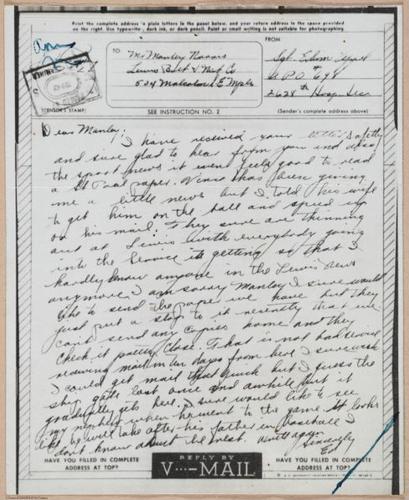 Print the complete address in plain letters in the panel below, and your return address in the space provided
on the right. Use typewriter, dark ink, or dark pencil. Paint or small writing is not suitable for photographing.
TO:
Mr Manley
Lewis Bolt & Nut Co
504 Malcolm E Mpls
FROM
Sgt. Edwin
A.P.O. 698
28th Hosp Sec
CENSOR'S STAMP
SEE INSTRUCTION NO. 2
(Sender's complete address above)
Dear Manley:
I have received your letter
and sure glad to hear from you and also
the sport news it even feels good to read
a St Paul paper. has been giving
me a little news but I told his wife
to get him on the ball and speed up
on his mail. They sure are thinning
out at Lewis with everybody going
into the Service its getting so that I
hardly know anyone in the Lewis news
anymore. I am sorry Manley I sure would
like to send the paper we have but they
just put a stop to it recently that we
cant send any copies home and they
check it pretty close. That is not bad service
receiving mail in ten days from here I sure wish
I could get mail that quick but I guess the
ship gets lost once and awhile but it
gradually gets here. I sure would like to see
my when he went to the game. It looks
like he will take after his father in baseball I
dont know about the rest. write again
Sincerely
Ed
HAVE YOU FILLED IN COMPLETE
ADDRESS AT TOP?
REPLY BY
V···—MAIL
HAVE YOU FILLED IN COMPLETE
ADDRESS AT TOP?